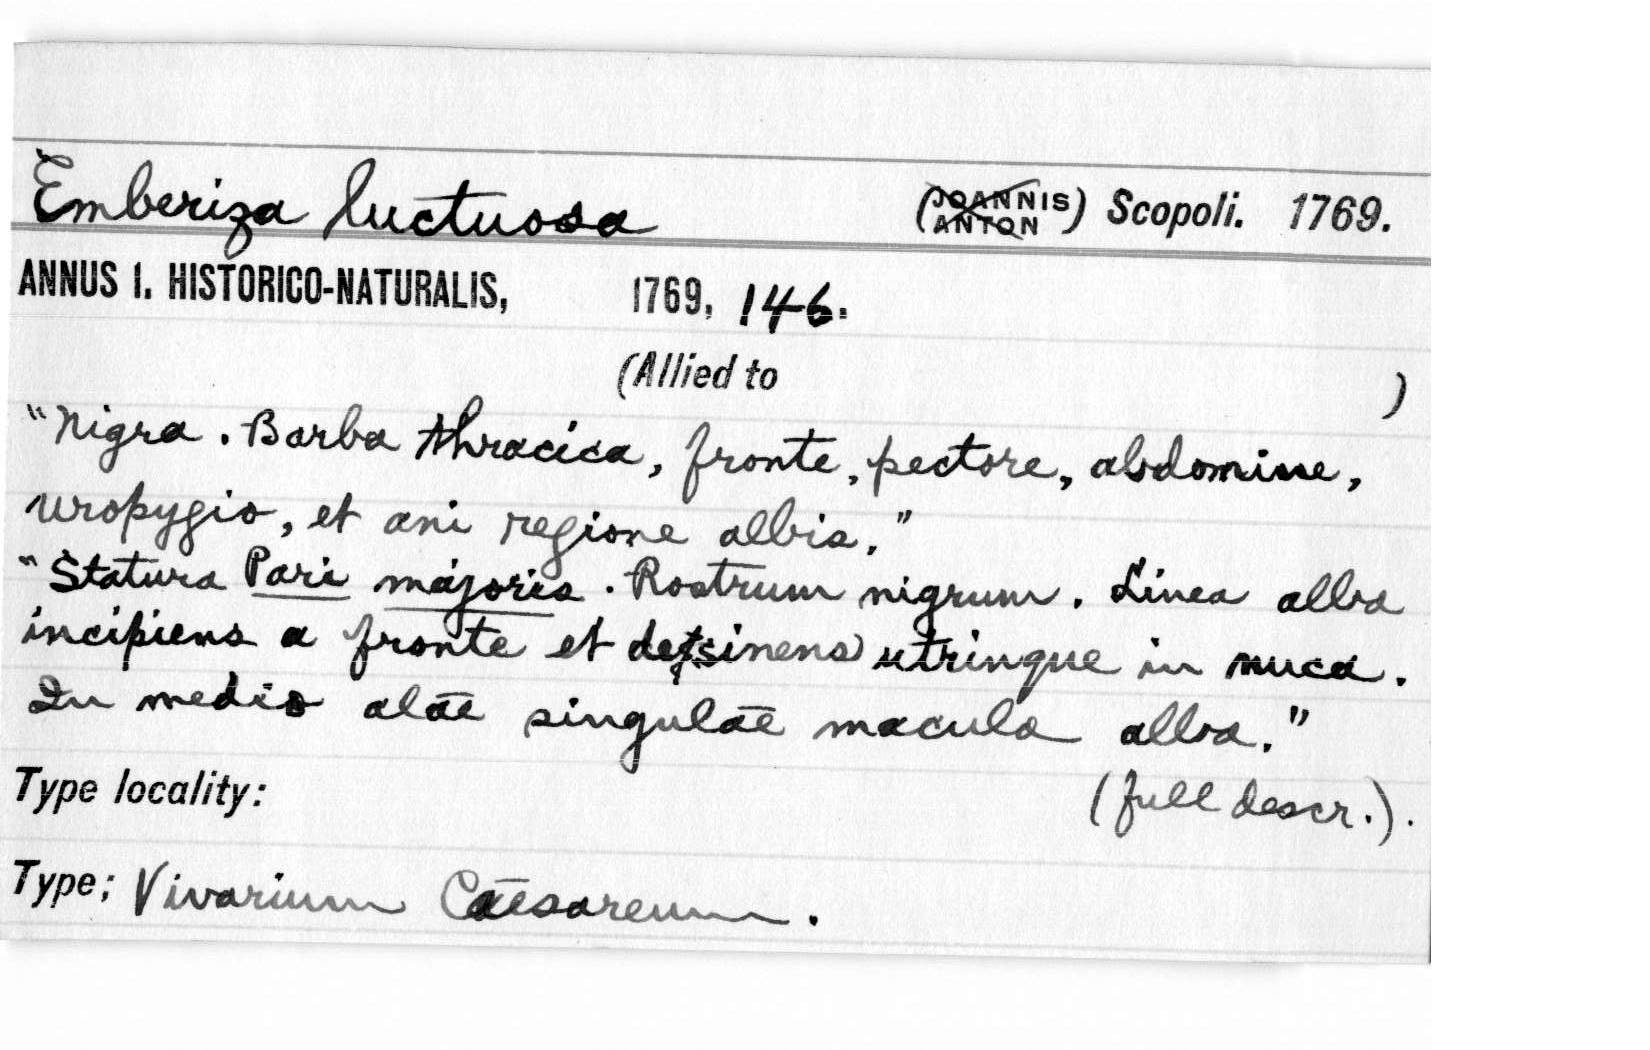 Emberiza luctuosa (JOANNIS ANTON) Scopoli. 1769.
ANNUS I. HISTORICO-NATURALIS, 1769, 146.
(Allied to )
"Nigra. Barba thracica, fronte, pectore, abdomine,
uropygio, et ani regione albis."
"Statura Pari majoris. Rostrum nigrum. Linea alba
incipiens a fronte et desinens utringue in nuca.
In medio alae singulae macula alba."
(full descr.).
Type locality:
Type; Vivarium Caesareum.